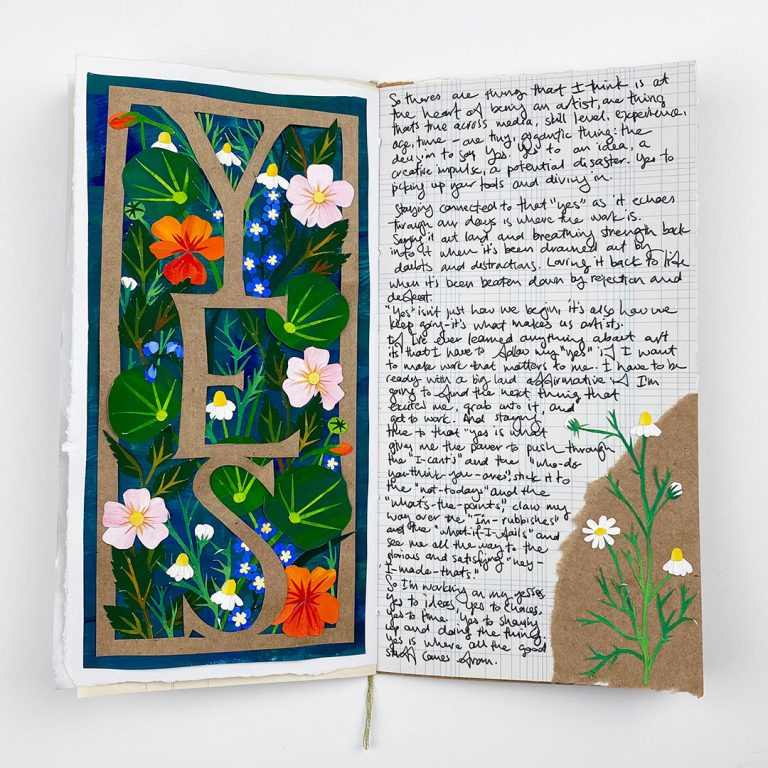 YES
So theres are things that I think is at
the heart of being an artist, one thing
thats true across media, skill level, experience,
age, time - one tiny, gigantic thing: the
decision to say yes. Yes to an idea, a
creative impulse, a potential disaster. Yes to
picking up your tools and diving in.
Staying connected to that "yes" as it echoes
through our days is where the work is.
Saying it out loud and breathing strength back
into it when it's been drained out by
doubts and distractions. Loving it back to life
when it's been beaten down by rejection and
defeat.
"Yes" isn't just how we begin, it's also how we
keep going - it's what makes us artists.
If I've ever learned anything about art
it's that I have to follow my "yes" if I want
to make work that matters to me. I have to be
ready with a big loud affirmative if I'm
going to find the next thing that
excites me, grab onto it, and
get to work. And staying
true to that "yes is what
gives me the power to push through
the "I-cant's" and the "who-do-
you-think-you-ares", stick it to
the "not-todays" and the
"whats-the-points", claw my
way over the "Im-rubbishes"
and the "what-if-I-fails" and
see me all the way to the
glorious and satisfying "hey-
I-made-thats."
So I'm working on my yesses.
Yes to ideas, Yes to choices,
yes to time. Yes to showing
up and doing the thing.
yes is where all the good
stuff comes from.